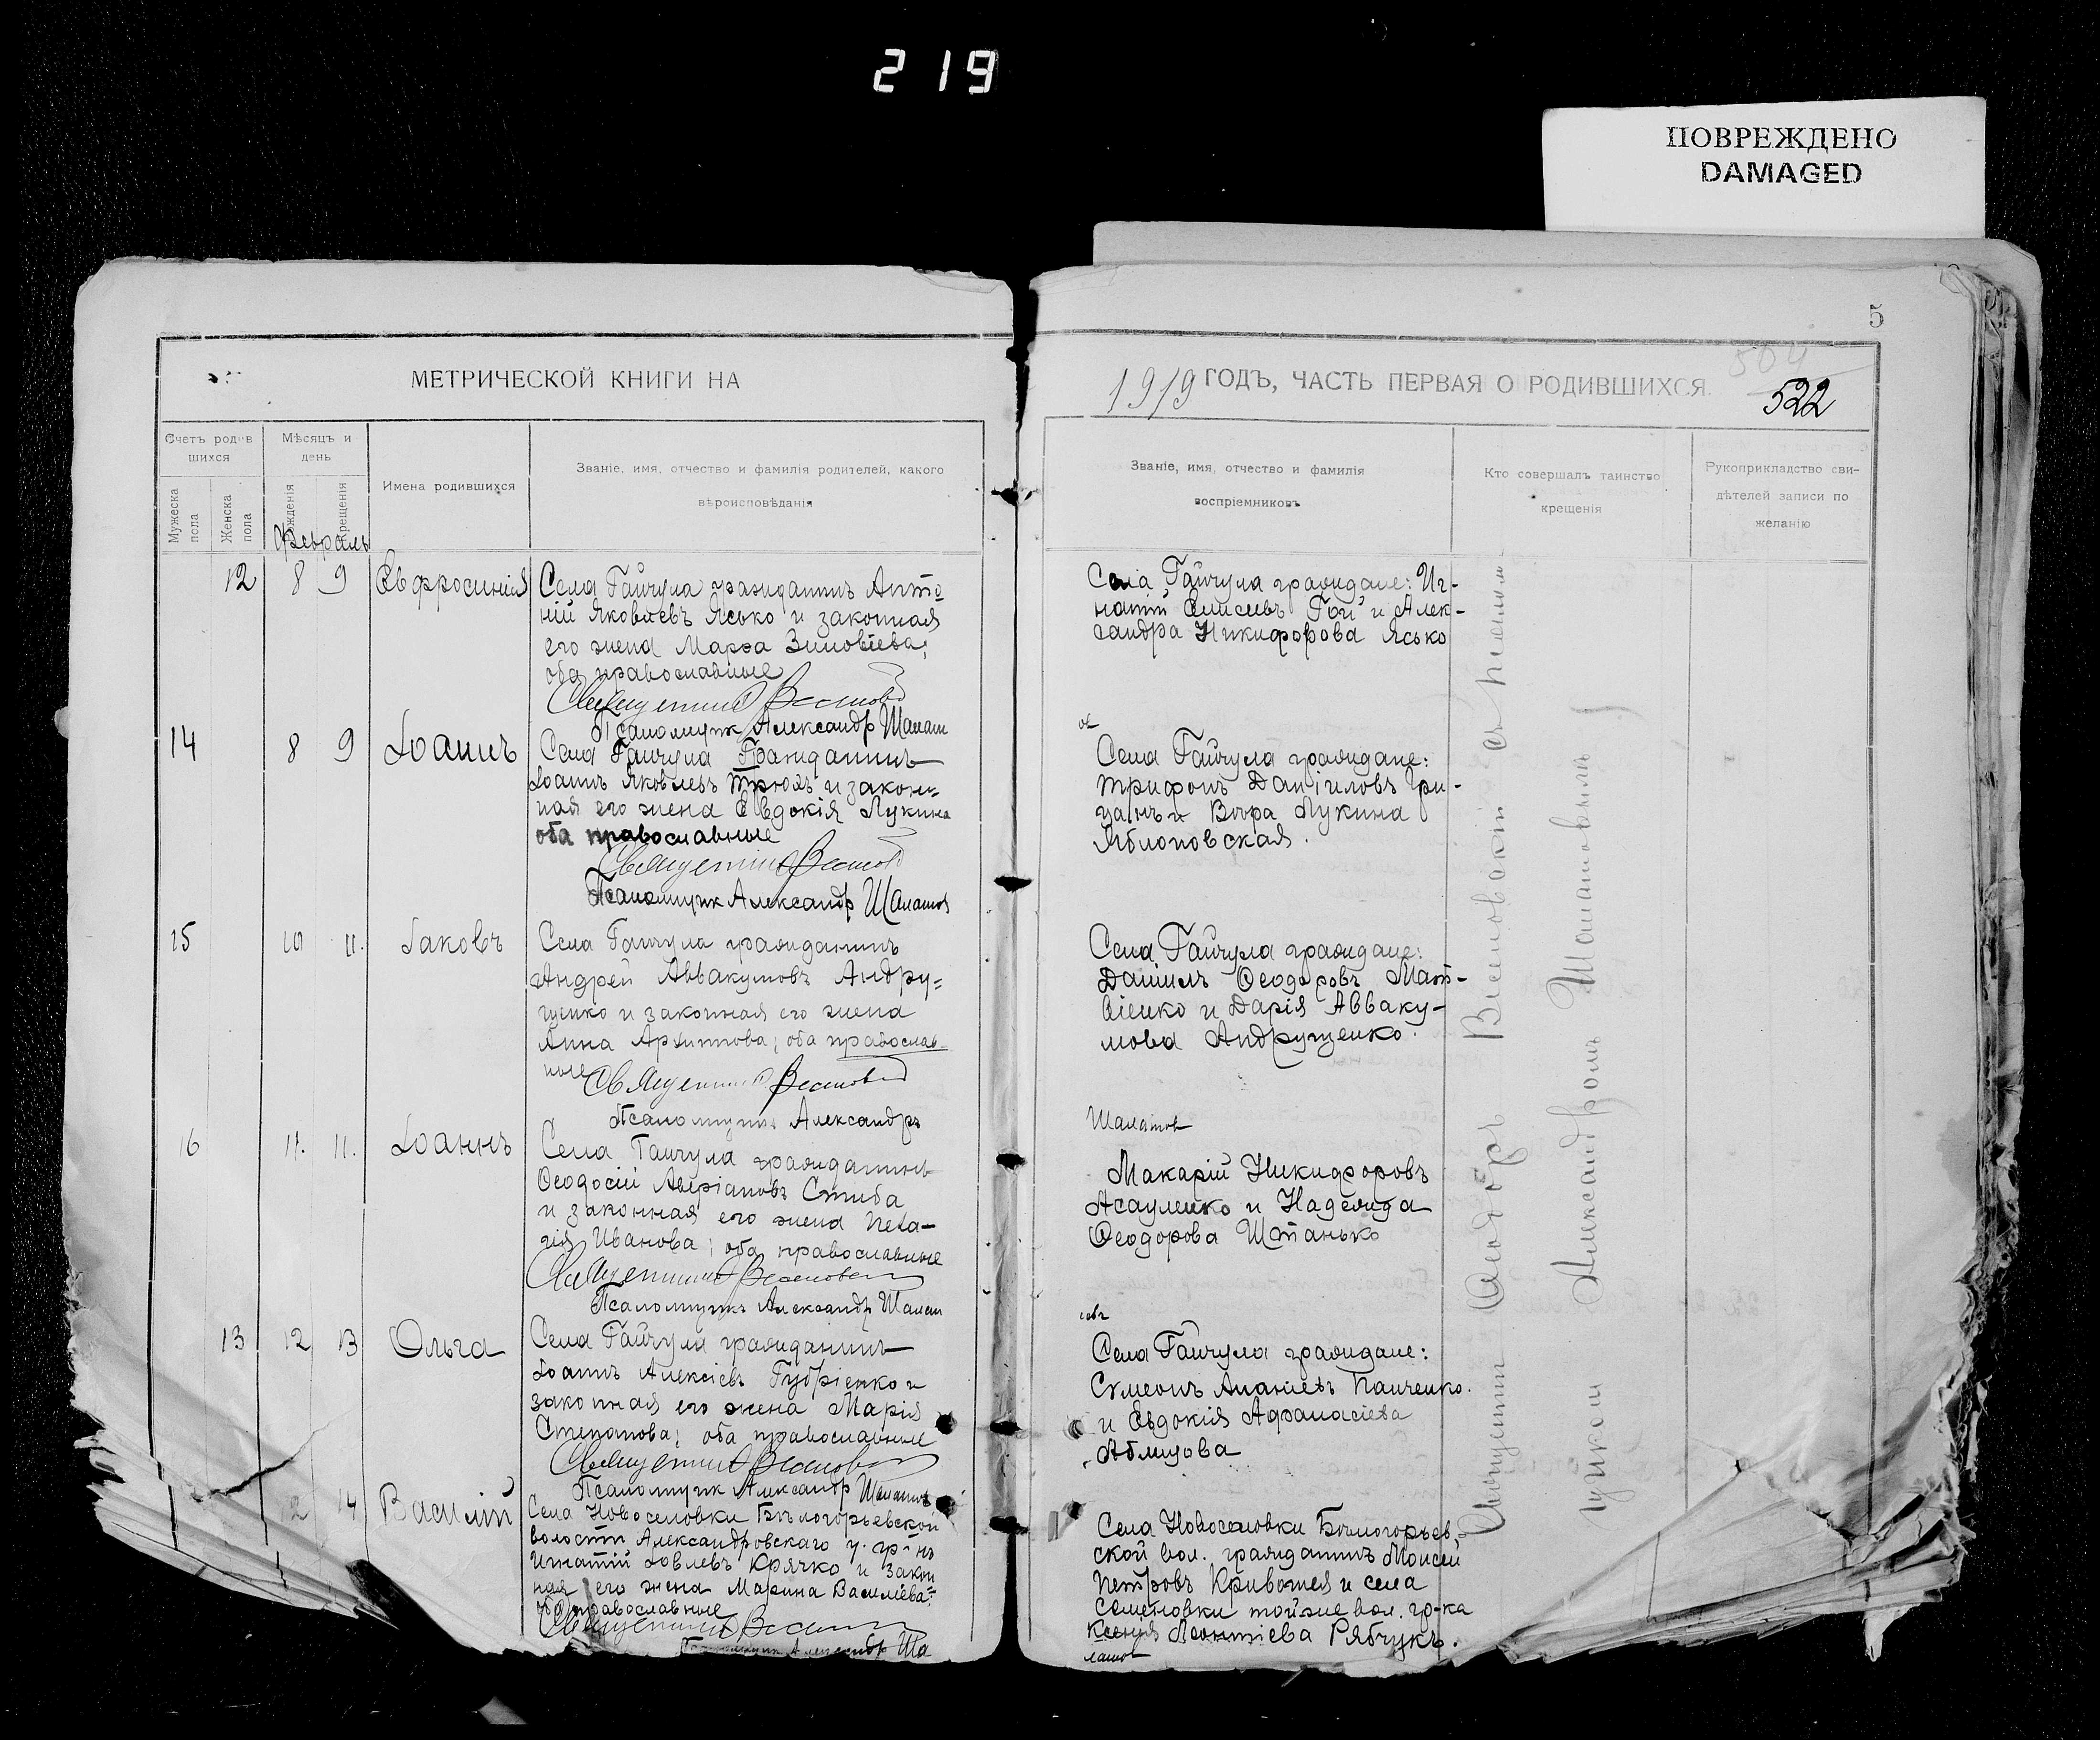 219
ПОВРЕЖДЕНО
DAMAGED
5
504
522
МЕТРИЧЕСКОЙ КНИГИ НА
1919 ГОДЪ, ЧАСТЬ ПЕРВАЯ О РОДИВШИХСЯ.
Счетъ родив
шихся
Мужеска
пола
Женска
пола
Мѣсяцъ и
день
рожденія
крещенія
Февраль
Имена родившихся
Званіе, имя, отчество и фамилія родителей, какого
вѣроисповѣданія
Званіе, имя, отчество и фамилія
воспріемниковъ
Кто совершалъ таинство
крещенія
Рукоприкладство сви-
дѣтелей записи по
желанію
12 8 9 Евфросинія
Села Гайчула гражданинъ Анто
ній Яковлевъ Ясько и законная
его жена Марѳа Зиновіева;
оба православные
Священникъ
Псаломщик Александр Шалам
Села Гайчула граждане: Иг-
натій Елисеевъ Гой и Алек-
сандра Никифорова Ясько
ов
14 8 9 Іоаннъ
Села Гайчула Гражданинъ
Іоаннъ Яковлевъ и закон=
ная его жена Евдокія Лукина
оба православные
Священникъ
Псаломщик Александр Шаламов
Села Гайчула граждане:
Трифонъ Даніиловъ Гри-
и Вѣра Лукина
Яблоновская.
15 10 11. Іаковъ
Села Гайчула гражданинъ
Андрей Аввакумовъ Андру=
щенко и законная его жена
Анна Архиппова; оба православ-
ные
Священникъ
Псаломщикъ Александръ
Села Гайчула граждане:
Даніилъ Ѳеодоровъ Мат-
віенко и Дарія Авваку-
мова Андрущенко.
Шаламов
16 11. 11. Іоаннъ
Села Гайчула гражданинъ
Ѳеодосій Аверіановъ
и законная его жена Пела-
гія Иванова; оба православные
Священникъ
Псаломщикъ Александр Шалам
Макарій Никифоровъ
Асауленко и Надежда
Ѳеодорова Штанько
овъ
13 12 13 Ольга
Села Гайчула гражданинъ
Іоаннъ Алексіевъ Губріенко и
законная его жена Марія
Степанова; оба православные
Священникъ
Псаломщик Александр Шаламов
Села Гайчула граждане:
Сумеонъ Ананіевъ Панченко
и Евдокія Афанасіева
2 14 Василій
Села Новоселовки Бѣлогорьевской
волости Александровскаго у. гр-нъ
Игнатій Крячко и закон
ная его жена Марина Василіева;
оба православные
Священникъ
Псаломщик Александр Ша
Села Новоселовки Бѣлогорьев-
ской вол. гражданинъ Моисей
Петровъ Кривошея и села
Семеновки тойже вол. гр-ка
Ксенія Леонтіева Рябчукъ.
ламов
Священникъ Ѳеодоръ съ псалом
щикомъ Александромъ Шаламовымъ